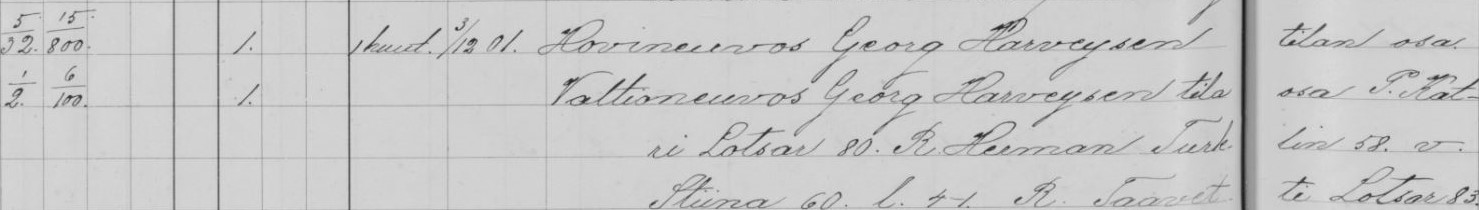 5/32. 15/800. 1. 1 kuul. 3/12 01. Hovineuvos Georg Harveysen tilan osa.
1/2. 6/100. 1. Valtioneuvos Georg Harveysen tila osa P. Kat=
ri Lotsar 80. R. Herman Turk- lin 58. v.
Stiina 60. l. 41. R. Taavet ti Lotsar 83.